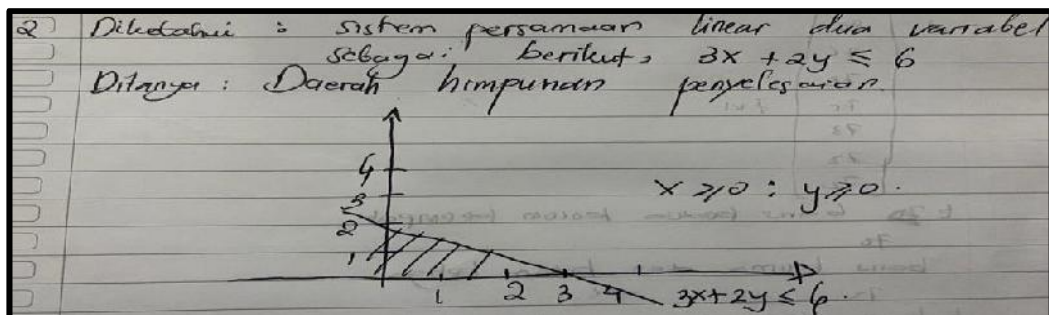 2 Diketahui : sistem persamaan linear dua variabel
sebagai berikut, 3x + 2y ≤ 6
Ditanya : Daerah himpunan penyelesaian.
4
x ≥ 0 : y ≥ 0.
3
2
1
1 2 3 4 3x+2y ≤ 6.